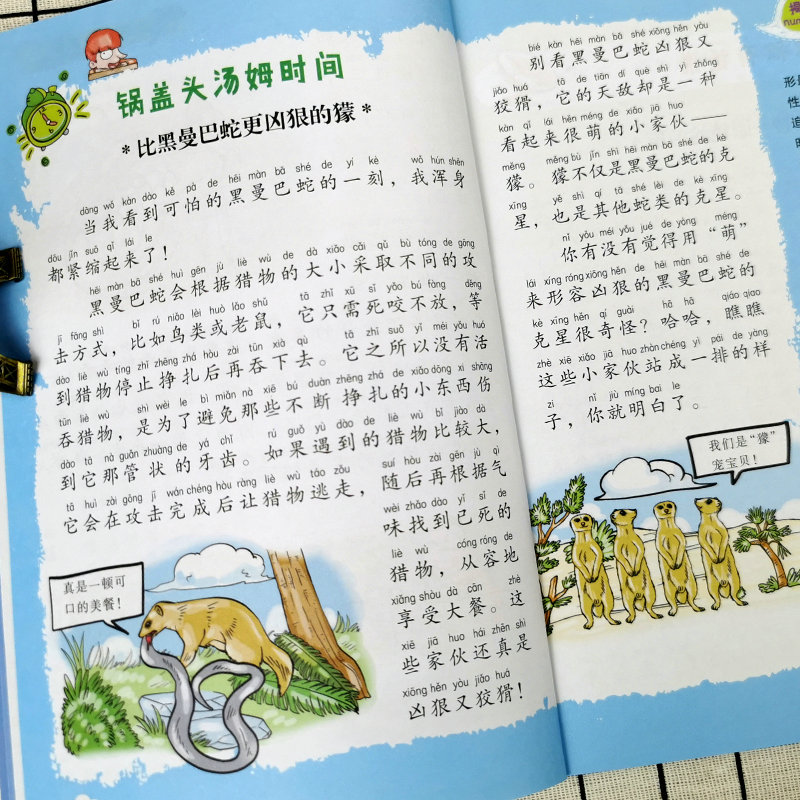 锅盖头汤姆时间
*比黑曼巴蛇更凶狠的獴*
dāng wǒ kàn dào kě pà de hēi màn bā shé de yí kè wǒ hún shēn
当我看到可怕的黑曼巴蛇的一刻，我浑身
dōu jǐn suō qǐ lái le
都紧缩起来了！
hēi màn bā shé huì gēn jù liè wù de dà xiǎo cǎi qǔ bù tóng de gōng
黑曼巴蛇会根据猎物的大小采取不同的攻
jī fāng shì bǐ rú niǎo lèi huò lǎo shǔ tā zhǐ xū sǐ yǎo bú fàng děng
击方式，比如鸟类或老鼠，它只需死咬不放，等
dào liè wù tíng zhǐ zhēng zhá hòu zài tūn xià qù tā zhī suǒ yǐ méi yǒu huó
到猎物停止挣扎后再吞下去。它之所以没有活
tūn liè wù shì wèi le bì miǎn nà xiē bú duàn zhēng zhá de xiǎo dōng xi shāng
吞猎物，是为了避免那些不断挣扎的小东西伤
dào tā nà guǎn zhuàng de yá chǐ rú guǒ yù dào de liè wù bǐ jiào dà
到它那管状的牙齿。如果遇到的猎物比较大，
tā huì zài gōng jī wán chéng hòu ràng liè wù táo zǒu suí hòu zài gēn jù qì
它会在攻击完成后让猎物逃走，随后再根据气
wèi zhǎo dào yǐ sǐ de
味找到已死的
liè wù cóng róng de
猎物，从容地
xiǎng shòu dà cān zhè
享受大餐。这
xiē jiā huo hái zhēn shì
些家伙还真是
xiōng hěn yòu jiǎo huá
凶狠又狡猾！
真是一顿可
口的美餐！
bié kàn hēi màn bā shé xiōng hěn yòu
别看黑曼巴蛇凶狠又
jiǎo huá tā de tiān dí què shì yì zhǒng
狡猾，它的天敌却是一种
kàn qǐ lái hěn méng de xiǎo jiā huo
看起来很萌的小家伙——
měng měng bù jǐn shì hēi màn bā shé de kè
獴。獴不仅是黑曼巴蛇的克
xīng yě shì qí tā shé lèi de kè xīng
星，也是其他蛇类的克星。
nǐ yǒu méi yǒu jué de yòng méng
你有没有觉得用“萌”
lái xíng róng xiōng hěn de hēi màn bā shé de
来形容凶狠的黑曼巴蛇的
kè xīng hěn qí guài hā hā qiáo qiao
克星很奇怪？哈哈，瞧瞧
zhè xiē xiǎo jiā huo zhàn chéng yì pái de yàng
这些小家伙站成一排的样
zi nǐ jiù míng bai le
子，你就明白了。
我们是“獴”
宠宝贝！